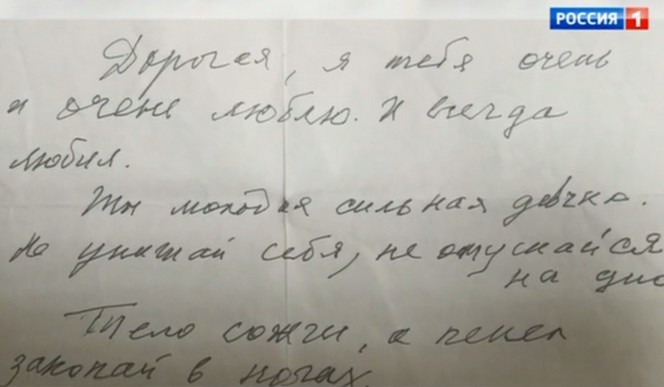 РОССИЯ 1
Дорогая, я тебя очень
и очень люблю. И всегда
любил.
Ты молодая сильная девчка.
Не унижай себя, не опускайся
на дно
Тело сожги, а пепел
закопай в ногах.